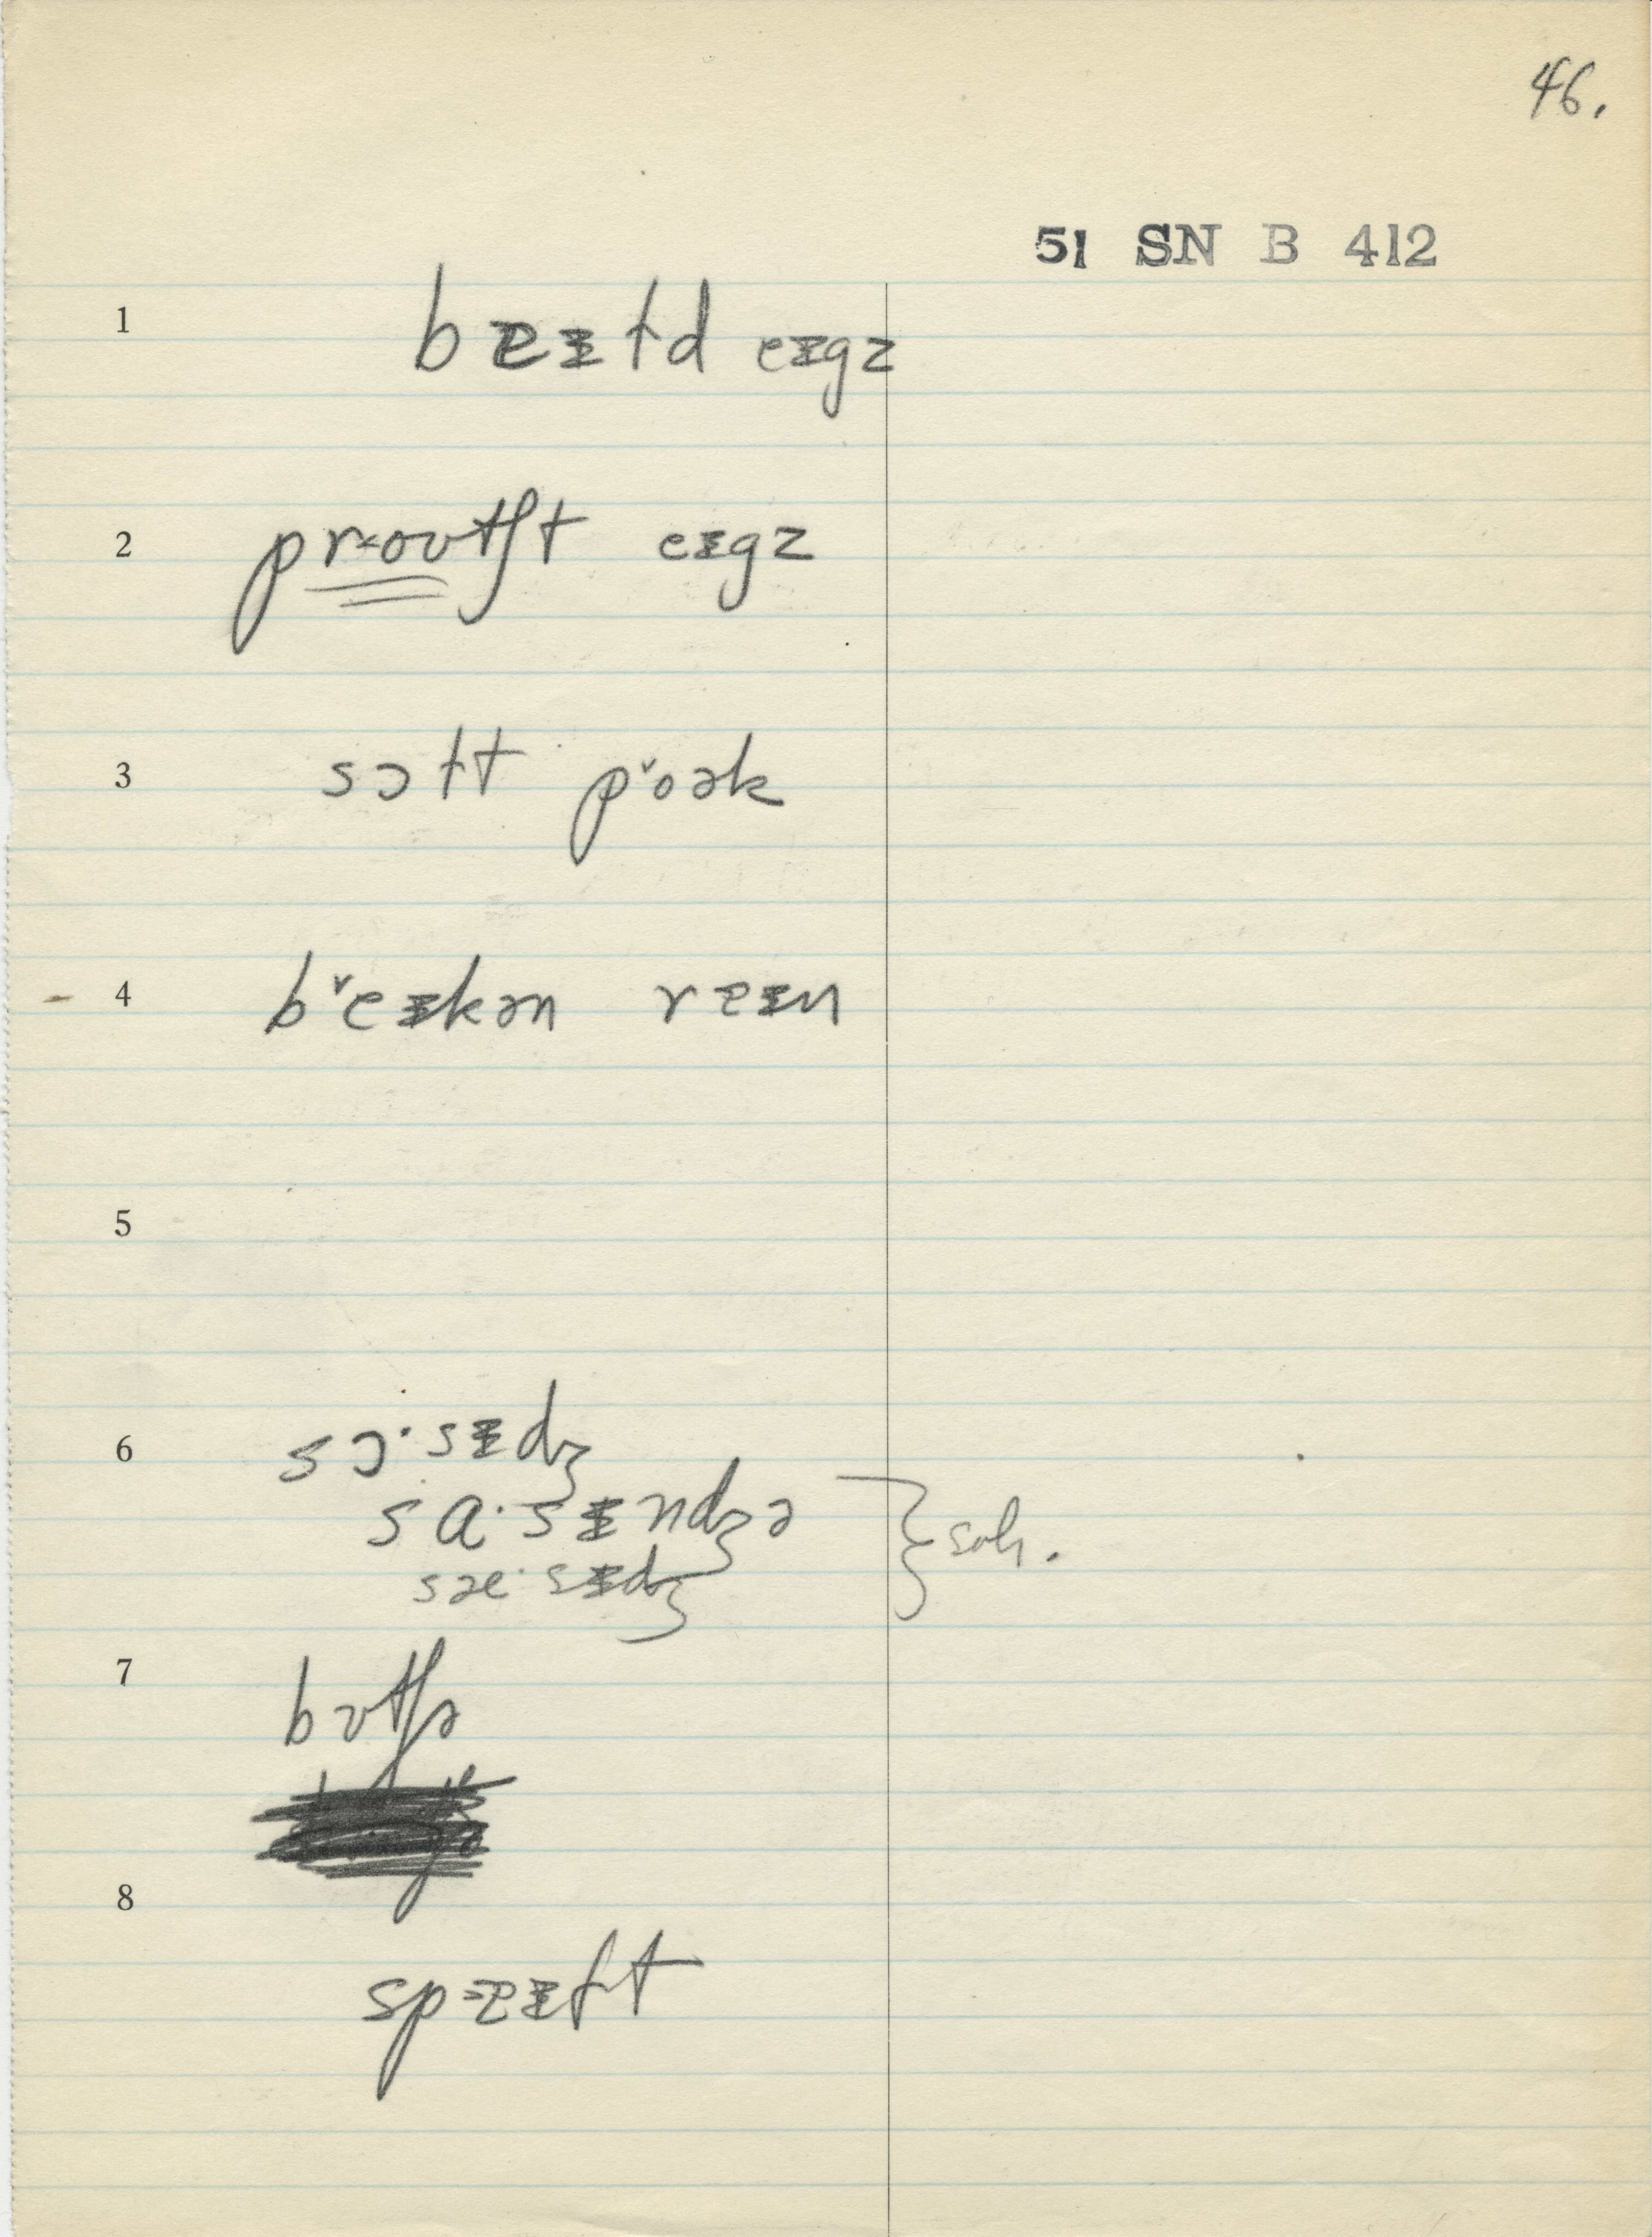 46.
51 SN B 412
1 beɪɫd eɪgz
2 proʊtʃt eɪgz
3 sɔɫt pˇoək
4 bˇeɪkən reɪn
5
6 sɔ·sɪdʒ
sɑ·sɪndʒə
sæ·sɪdʒ
7 bʊtʃə
8
speɪft